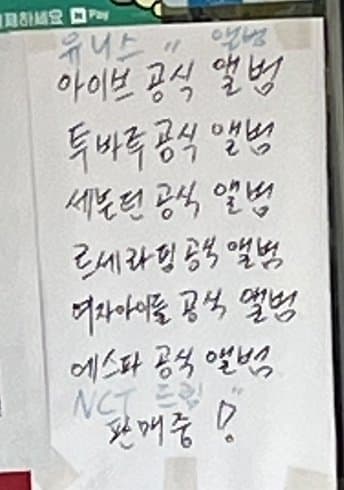 제하세요 N Pay
유니스 〃 앨범
아이브 공식 앨범
투바투 공식 앨범
세븐틴 공식 앨범
르세라핌 공식 앨범
여자아이들 공식 앨범
에스파 공식 앨범
NCT 드림 〃
판매중!